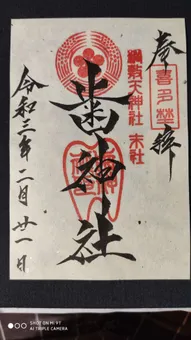 奉拝
喜多埜
綱敷天神社 末社
歯神社
令和三年二月廿一日
SHOT ON MI 9T
AI TRIPLE CAMERA